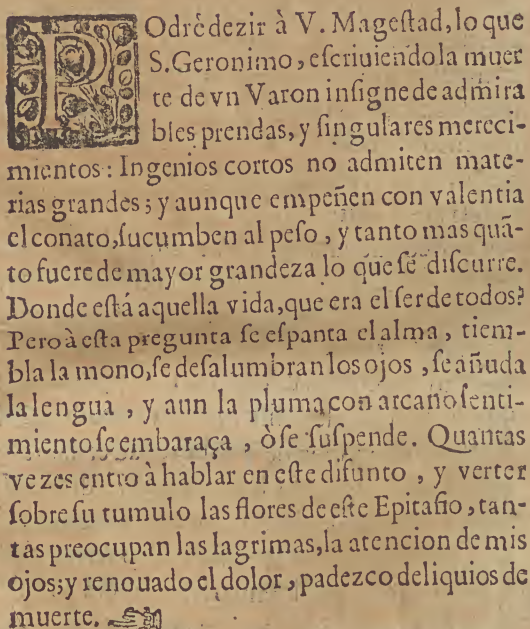 POdrè dezir à V. Mageſtad, lo que
S. Geronimo, eſcriuiendo la muer
te de vn Varon inſigne de admira
bles prendas, y ſingulares mereci-
mientos: Ingenios cortos no admiten mate-
rias grandes; y aunque empeñen con valentia
el conato, ſucumben al peſo, y tanto mas quā-
to fuere de mayor grandeza lo que ſe diſcurre.
Donde eſtá aquella vida, que era el ſer de todos?
Pero à eſta pregunta ſe eſpanta el alma, tiem-
bla la mono, ſe deſalumbran los ojos, ſe añuda
la lengua, y aun la pluma con arcano ſenti-
miento ſe embaraça, ò ſe ſuſpende. Quantas
vezes entro à hablar en eſte difunto, y verter
ſobre ſu tumulo las flores de eſte Epitafio, tan-
tas preocupan las lagrimas, la atencion de mis
ojos; y renouado el dolor, padezco deliquios de
muerte.